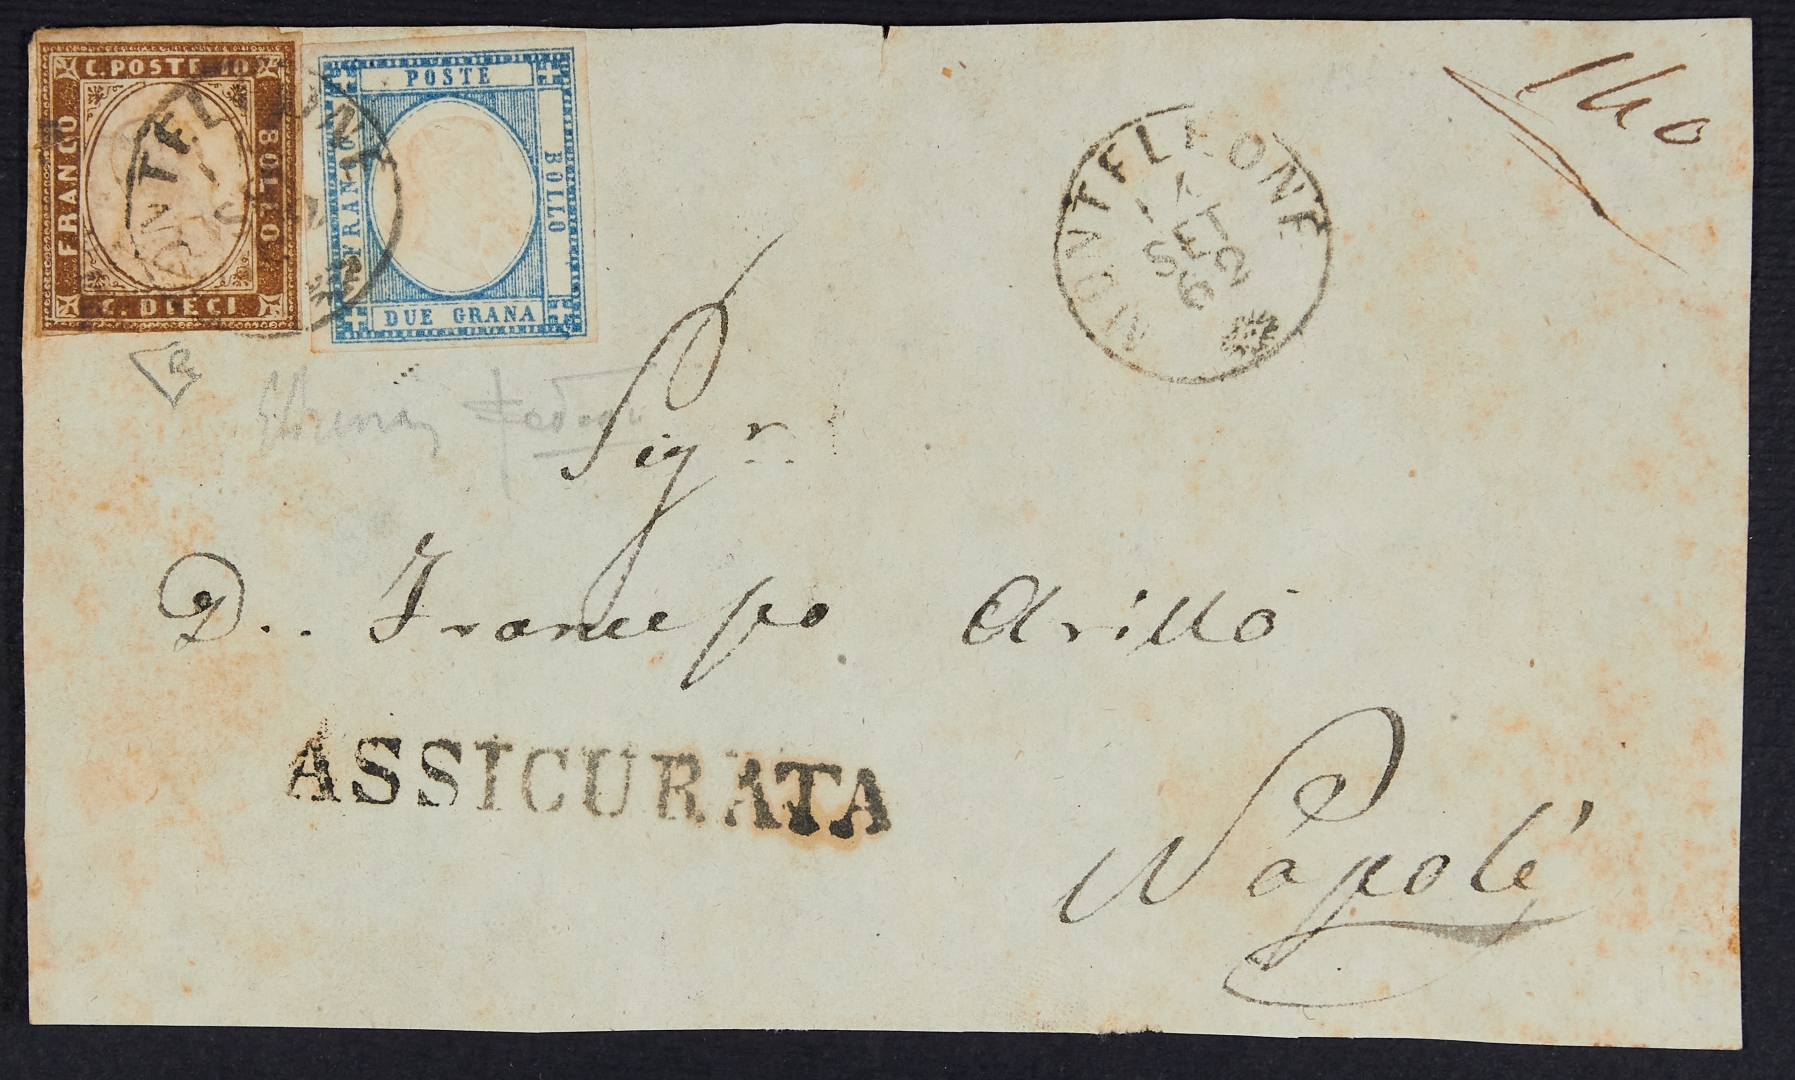 C. POSTE 10
FRANCO
BOLLO
C. DIECI
POSTE
FRANCO
BOLLO
DUE GRANA
MONTELEONE
MONTELEONE
SET
62
Sigr
D. Francesco Arillo
ASSICURATA
Napoli